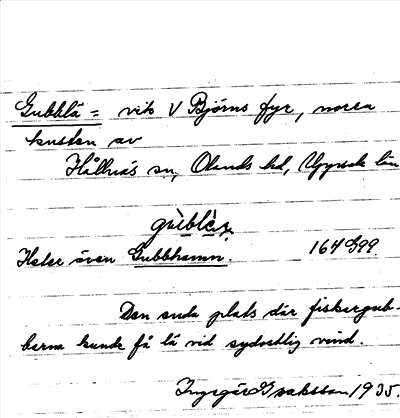 Gubblä = vik V Björns fyr, norra
kusten av
Hållnäs sn, Olands hd, Uppsala län
gùblè,
Heter även Gubbhamn. 164 G99
Den enda plats där fiskargub-
barna kunde få lä vid sydostlig vind.
Ingegär Isaksson 1935.